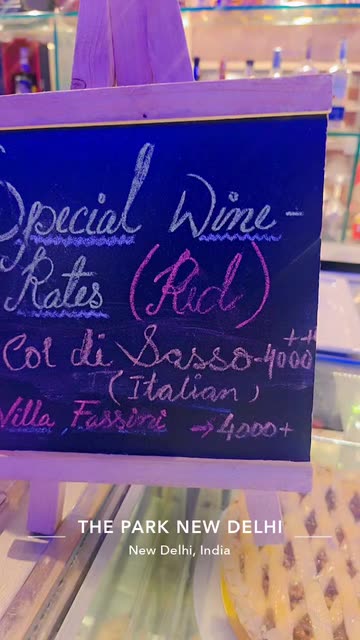 Special Wine-
Rates (Red)
Col di Sasso-4000++
(Italian)
Villa Fassini → 4000+
THE PARK NEW DELHI
New Delhi, India